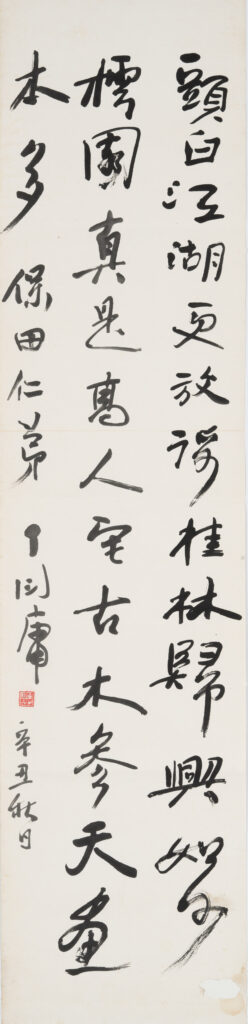 頭白江湖更放謌桂林歸興如何
樗園真是高人宅古木參天畫
本多 保田仁弟 丁衍庸 辛丑秋日